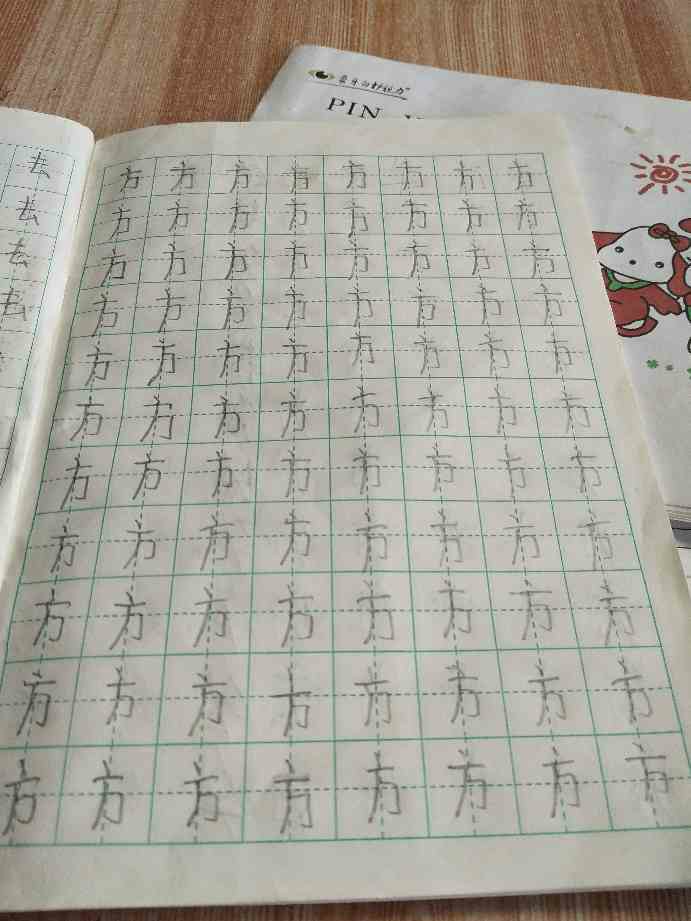 去
去
去
去
方 方 方 方 方 方 方 方
方 方 方 方 方 方 方 方
方 方 方 方 方 方 方 方
方 方 方 方 方 方 方 方
方 方 方 方 方 方 方 方
方 方 方 方 方 方 方 方
方 方 方 方 方 方 方 方
方 方 方 方 方 方 方 方
方 方 方 方 方 方 方 方
方 方 方 方 方 方 方 方
方 方 方 方 方 方 方 方
PIN